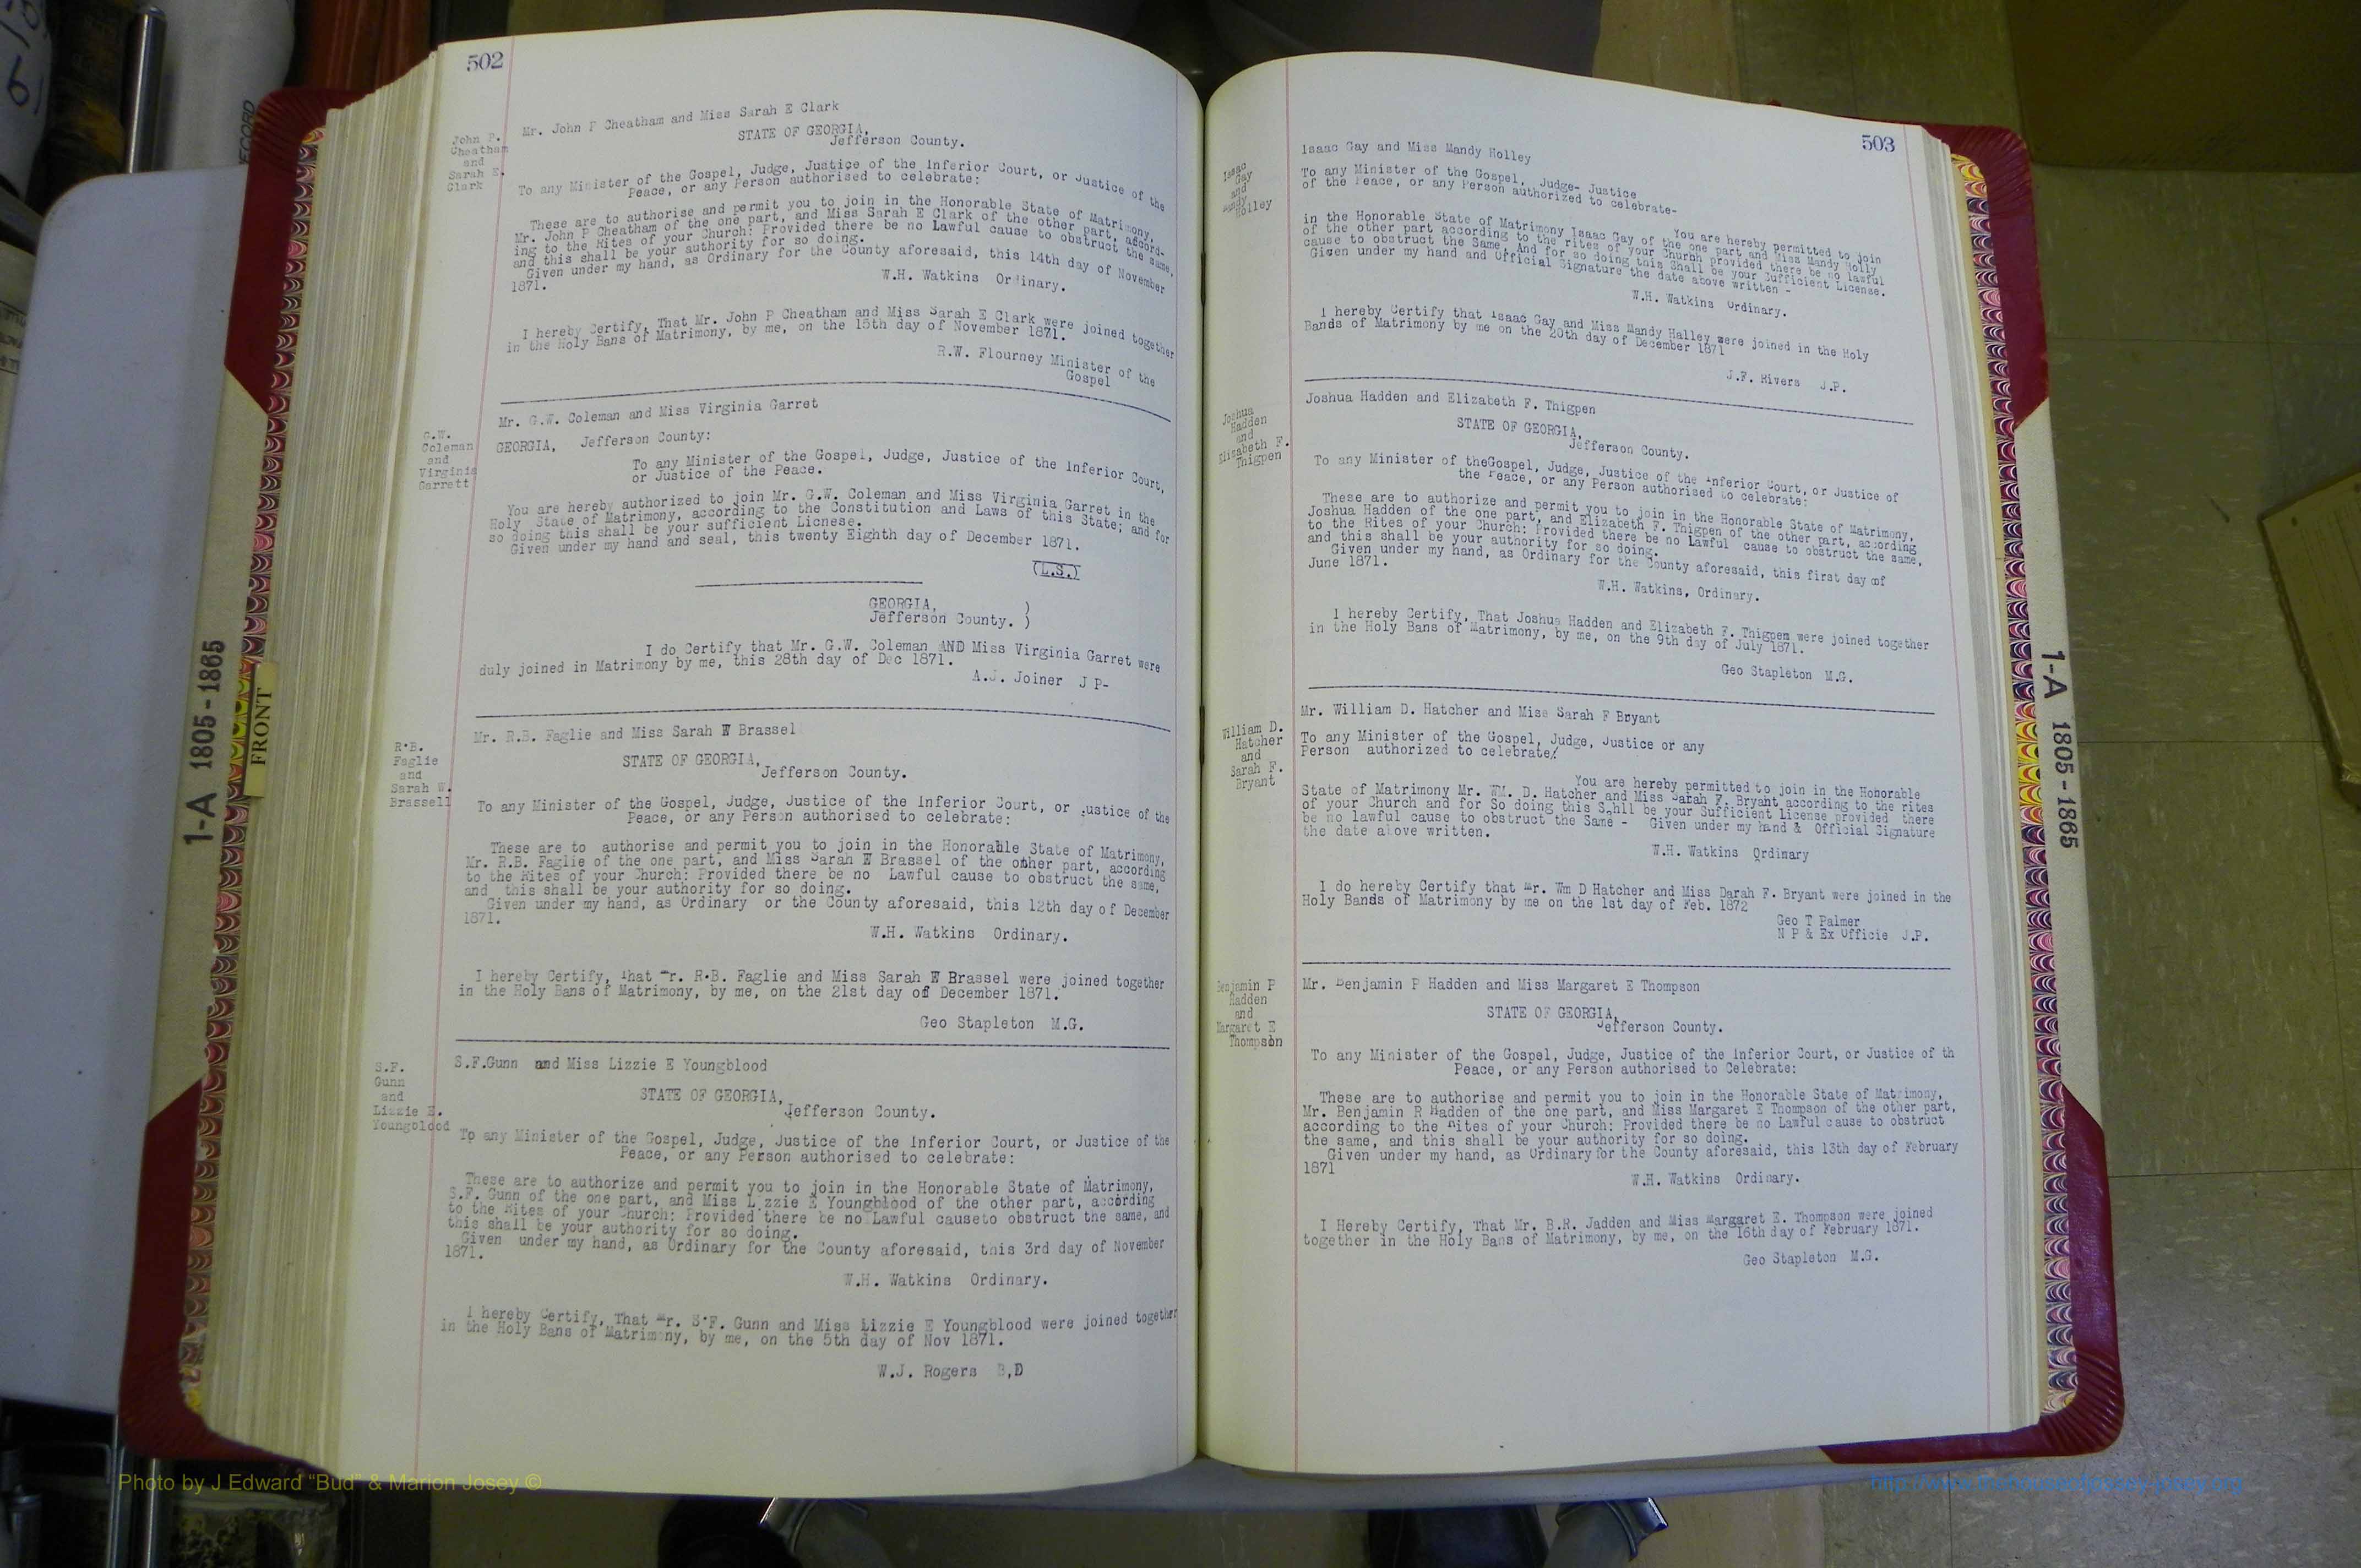 502
John P.
Cheatham
and
Sarah E.
Clark
Mr. John P Cheatham and Miss Sarah E Clark
STATE OF GEORGIA,
Jefferson County.
To any Minister of the Gospel, Judge, Justice of the Inferior Court, or Justice of the
Peace, or any Person authorised to celebrate:
These are to authorise and permit you to join in the Honorable State of Matrimony,
Mr. John P Cheatham of the one part, and Miss Sarah E Clark of the other part, accord-
ing to the Rites of your Church: Provided there be no Lawful cause to obstruct the same,
and this shall be your authority for so doing.
Given under my hand, as Ordinary for the County aforesaid, this 14th day of November
1871.
W.H. Watkins Ordinary.
I hereby Certify, That Mr. John P Cheatham and Miss Sarah E Clark were joined together
in the Holy Bans of Matrimony, by me, on the 15th day of November 1871.
R.W. Flourney Minister of the
Gospel
G.W.
Coleman
and
Virginia
Garrett
Mr. G.W. Coleman and Miss Virginia Garret
GEORGIA, Jefferson County:
To any Minister of the Gospel, Judge, Justice of the Inferior Court,
or Justice of the Peace.
You are hereby authorized to join Mr. G.W. Coleman and Miss Virginia Garret in the
Holy State of Matrimony, according to the Constitution and Laws of this State; and for
so doing this shall be your sufficient Licnese.
Given under my hand and seal, this twenty Eighth day of December 1871.
(L.S.)
GEORGIA, )
Jefferson County. )
I do Certify that Mr. G.W. Coleman AND Miss Virginia Garret were
duly joined in Matrimony by me, this 28th day of Dec 1871.
A.J. Joiner J P-
R.B.
Faglie
and
Sarah W.
Brassell
Mr. R.B. Faglie and Miss Sarah W Brassel
STATE OF GEORGIA,
Jefferson County.
To any Minister of the Gospel, Judge, Justice of the Inferior Court, or Justice of the
Peace, or any Person authorised to celebrate:
These are to authorise and permit you to join in the Honorable State of Matrimony,
Mr. R.B. Faglie of the one part, and Miss Sarah W Brassel of the other part, according
to the Rites of your Church: Provided there be no Lawful cause to obstruct the same,
and this shall be your authority for so doing.
Given under my hand, as Ordinary or the County aforesaid, this 12th day of December
1871.
W.H. Watkins Ordinary.
I hereby Certify, That Mr. R.B. Faglie and Miss Sarah W Brassel were joined together
in the Holy Bans of Matrimony, by me, on the 21st day of December 1871.
Geo Stapleton M.G.
S.F.
Gunn
and
Lizzie E.
Youngblood
S.F.Gunn and Miss Lizzie E Youngblood
STATE OF GEORGIA,
Jefferson County.
To any Minister of the Gospel, Judge, Justice of the Inferior Court, or Justice of the
Peace, or any Person authorised to celebrate:
These are to authorize and permit you to join in the Honorable State of Matrimony,
S.F. Gunn of the one part, and Miss Lizzie E Youngblood of the other part, according
to the Rites of your Church: Provided there be no Lawful causeto obstruct the same, and
this shall be your authority for so doing.
Given under my hand, as Ordinary for the County aforesaid, this 3rd day of November
1871.
W.H. Watkins Ordinary.
I hereby Certify, That Mr. S.F. Gunn and Miss Lizzie E Youngblood were joined together
in the Holy Bans of Matrimony, by me, on the 5th day of Nov 1871.
W.J. Rogers B,D
503
Isaac
Gay
and
Mandy
Holley
Isaac Gay and Miss Mandy Holley
To any Minister of the Gospel, Judge- Justice
of the Peace, or any Person authorized to celebrate-
You are hereby permitted to join
in the Honorable State of Matrimony Isaac Gay of the one part and Miss Mandy Holly
of the other part according to the rites of your Church provided there be no lawful
cause to obstruct the Same, And for so doing this Shall be your Sufficient License.
Given under my hand and Official Signature the date above written -
W.H. Watkins Ordinary.
I hereby Certify that Isaac Gay and Miss Mandy Halley were joined in the Holy
Bands of Matrimony by me on the 20th day of December 1871
J.F. Rivers J.P.
Joshua
Hadden
and
Elizabeth F.
Thigpen
Joshua Hadden and Elizabeth F. Thigpen
STATE OF GEORGIA,
Jefferson County.
To any Minister of theGospel, Judge, Justice of the Inferior Court, or Justice of
the Peace, or any Person authorised to celebrate:
These are to authorize and permit you to join in the Honorable State of Matrimony,
Joshua Hadden of the one part, and Elizabeth F. Thigpen of the other part, according
to the Rites of your Church: Provided there be no Lawful cause to obstruct the same,
and this shall be your authority for so doing.
Given under my hand, as Ordinary for the County aforesaid, this first day of
June 1871.
W.H. Watkins, Ordinary.
I hereby Certify, That Joshua Hadden and Elizabeth F. Thigpen were joined together
in the Holy Bans of Matrimony, by me, on the 9th day of July 1871.
Geo Stapleton M.G.
William D.
Hatcher
and
Sarah F.
Bryant
Mr. William D. Hatcher and Miss Sarah F Bryant
To any Minister of the Gospel, Judge, Justice or any
Person authorized to celebrate/
You are hereby permitted to join in the Honorable
State of Matrimony Mr. WM. D. Hatcher and Miss Sarah F. Bryant according to the rites
of your Church and for So doing this S,hll be your Sufficient License provided there
be no lawful cause to obstruct the Same - Given under my hand & Official Signature
the date above written.
W.H. Watkins Ordinary
I do hereby Certify that Mr. Wm D Hatcher and Miss Darah F. Bryant were joined in the
Holy Bands of Matrimony by me on the 1st day of Feb. 1872
Geo T Palmer
N P & Ex Officie J.P.
Benjamin P
Hadden
and
Margaret E
Thompson
Mr. Benjamin P Hadden and Miss Margaret E Thompson
STATE OF GEORGIA,
Jefferson County.
To any Minister of the Gospel, Judge, Justice of the Inferior Court, or Justice of th
Peace, or any Person authorised to Celebrate:
These are to authorise and permit you to join in the Honorable State of Matrimony,
Mr. Benjamin R Hadden of the one part, and Miss Margaret E Thompson of the other part,
according to the Rites of your Church: Provided there be no Lawful cause to obstruct
the same, and this shall be your authority for so doing.
Given under my hand, as Ordinary for the County aforesaid, this 13th day of February
1871
W.H. Watkins Ordinary.
I Hereby Certify, That Mr. B.R. Jadden and Miss Margaret E. Thompson were joined
together in the Holy Bans of Matrimony, by me, on the 16th day of February 1871.
Geo Stapleton M.G.
1-A 1805-1865
FRONT
1-A 1805-1865
Photo by J Edward “Bud” & Marion Josey ©